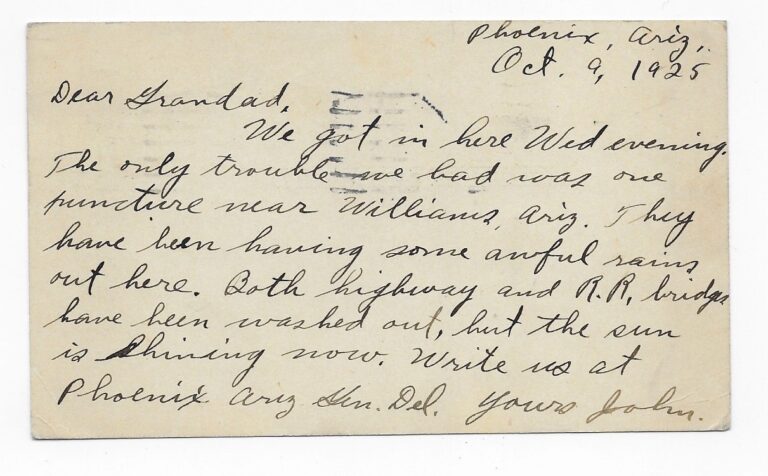 Phoenix, Ariz,.
Oct. 9, 1925
Dear Grandad,
We got in here Wed evening.
The only trouble we had was one
puncture near Williams, Ariz. They
have been having some awful rains
out here. Both highway and R.R. bridges
have been washed out, but the sun
is shining now. Write us at
Phoenix Ariz Gen. Del. Yours John.